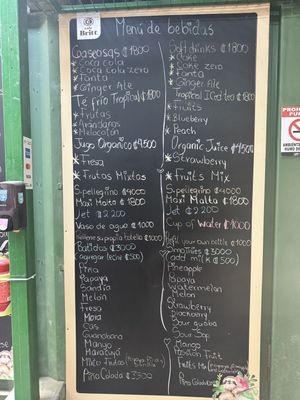 Café
Britt
Menú de bebidas
Gaseosas ₡1800
* Coca cola
* Coca cola zero
* Fanta
* Ginger Ale
Te frio Tropical ₡1800
* Frutas
* Arandanos
* Melocotón
Jugo Organico ₡4500
* Fresa
* Frutos Mixtos
S.pellegrino ₡4000
Maxi Malta ₡1800
Jet ₡2200
Vaso de agua ₡1000
Rellene su propia botella ₡1000
Batidos ₡3000
(agregar leche ₡500)
Piña
Papaya
Sandia
Melon
Fresa
Mora
Cas
Guanabana
Mango
Maracuyá
Mixto Frutas
Piña Colada ₡3500
Soft drinks ₡1800
* Coke
* Coke zero
* Fanta
* Ginger Ale
Tropical Iced tea ₡1800
* Fruits
* Blueberry
* Peach
Organic Juice ₡4500
* Strawberry
* Fruits Mix
S.pellegrino ₡4000
Maxi Malta ₡1800
Jet ₡2200
Cup of Water ₡1000
Refill your own bottle ₡1000
Smoothies ₡3000
(add milk ₡500)
Pineapple
Papaya
Watermelon
Melon
Strawberry
Blackberry
Sour guaba
Sour Sop
Mango
Passion Fruit
Fruits Mix
Piña Colada
PROHI
AMBIENTE
HUMO DE